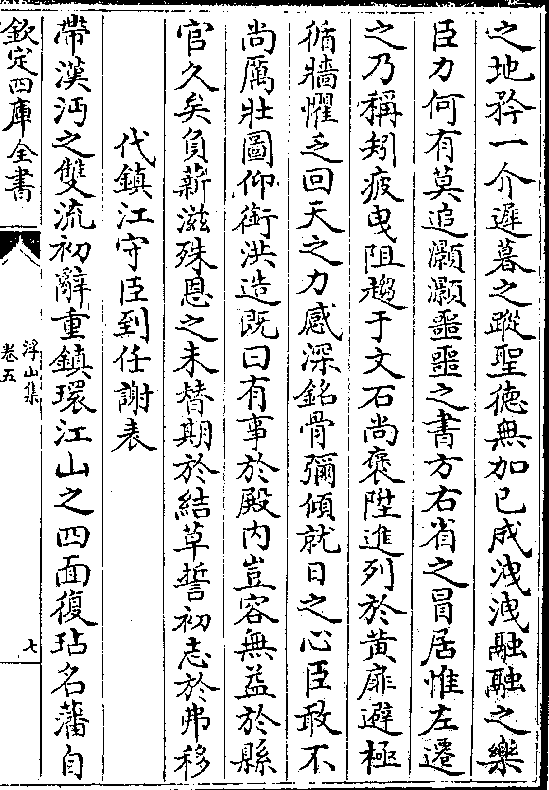 之地矜一介遲暮之蹤聖德無加已成洩洩融融之樂
臣力何有莫追灝灝噩噩之書方右省之冒居惟左遷
之乃稱矧疲曳阻趨于文石尚褒陞進列於黃扉避極
循牆懼乏回天之力感深銘骨彌傾就日之心臣敢不
尚厲壯圖仰銜洪造既曰有事於殿内豈容無益於縣
官久矣負薪滋殊恩之未替期於結草誓初志於弗移
代鎮江守臣到任謝表
帶漢沔之雙流初辭重鎮環江山之四面復玷名藩自
欽定四庫全書
浮山集
卷五
七